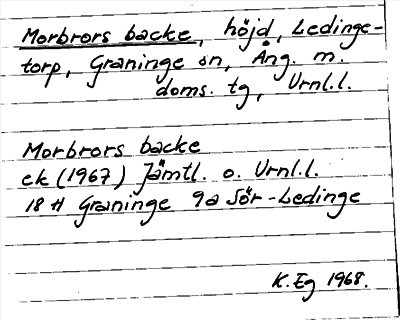 Morbrors backe, höjd, Ledinge-
torp, Graninge sn, Ång. m.
doms. tg, Vrnl.l.
Morbrors backe
ek (1967) Jämtl. o. Vrnl.l.
18 H Graninge 9a Sör-Ledinge
K. Eg 1968.